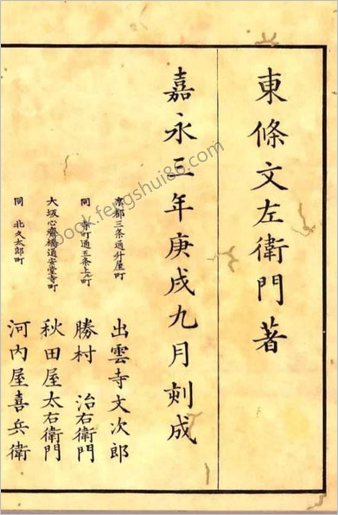 東條文左衛門著
嘉永三年庚戌九月刻成
京都三条通升屋町 出雲寺文次郎
同 寺町通五条上ル町 勝村治右衛門
大坂心斎橋通安堂寺町 秋田屋太右衛門
同 北久太郎町 河内屋喜兵衛
book.fengshui86.com